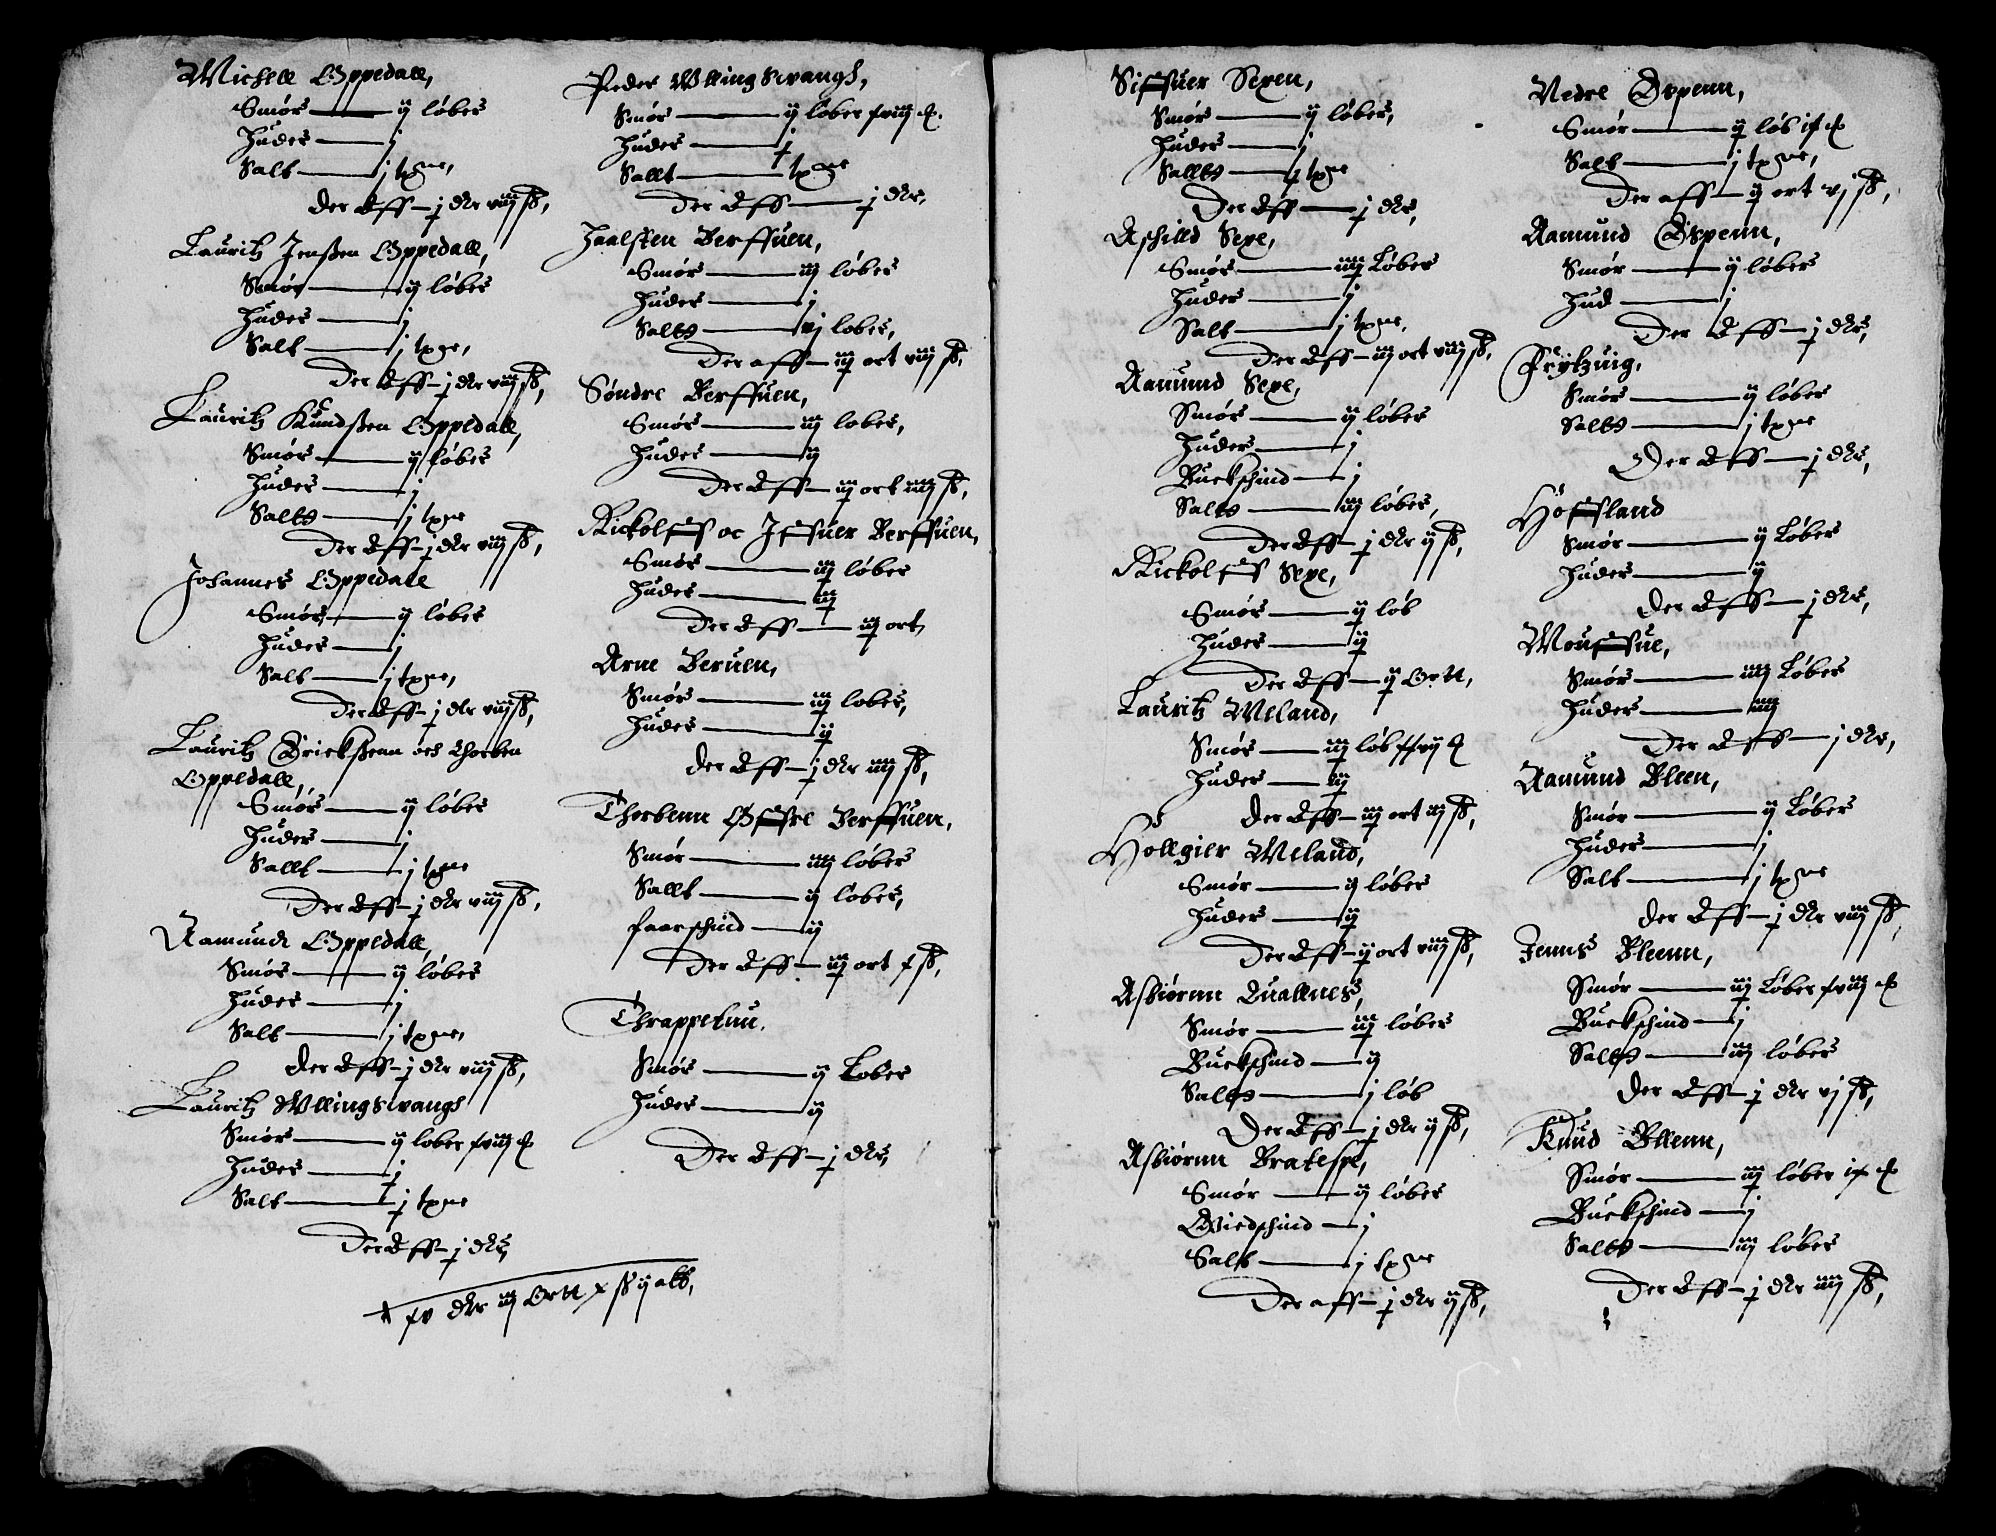 Michell Oppedall,
Smør — ij løber
Huder — j
Salt — j tøne,
Der Aff — j dlr viij ß,
Lauritz Jenßen Oppedall,
Smør — ij løber
Huder — j
Salt — j tøne,
Der Aff — j dlr viij ß,
Lauritz Knudßen Oppedall,
Smør — ij løber
Huder — j
Salt — j tøne
Der Aff — j dlr viij ß,
Johannes Oppedall
Smør — ij løber
Huder — j
Salt — j tøne,
Der Aff — j dlr viij ß,
Lauritz Erickßenn och Thorben
Oppedall,
Smør — ij løber
Huder — j
Sallt — j tøne
Der Aff — j dlr viij ß,
Aamund Oppedall,
Smør — ij løber
Huder — j
Salt — j tøne,
Der Aff — j dlr viij ß,
Lauritz Wllingswangh
Smør — ij løber xviij
Huder — j
Salt — j tøne
Der Aff — j dlr,
xv dlr iij Ortt x ß ij alb,
Peder Wllingswangh,
Smør — ij løber xviij
Huder — j
Sallt — tøne
Der Aff — j dlr,
Haalsten Berffuen,
Smør — iij løber
Huder — j
Salt — vj løber,
Der aff — iij ort viij ß,
Søndre Berffuen,
Smør — iij løber,
Huder — ij
Der Aff — iij ort iiij ß,
Rickolff oc Iffuer Berffuen,
Smør — iij løber
Huder — iij
Der Aff — iij ort
Arne Beruen,
Smør — iij løber,
Huder — ij
Der Aff — j dlr iiij ß,
Thorbenn Øffre Berffuen,
Smør — iiij løber
Sallt — ij løber,
faarschind — ij
Der Aff — iij ort x ß,
Thrappetun.
Smør — ij Løber
Huder — ij
Der Aff — j dlr,
Siffuer Sexen,
Smør — ij løber,
Huder — j
Sallt — j tøne
Der Aff — j dlr,
Aschilld Sexe,
Smør — iiij Løber
Huder — j
Salt — j tøne,
Der Aff — iij ort viij ß,
Aamund Sexe,
Smør — ij løber
Huder — j
Buckschind — j
Salt — iij løber,
Der Aff — j dlr ij ß,
Rickolff Sexe,
Smør — ij løb
Huder — ij
Der Aff — ij Ortt,
Lauritz Meland,
Smør — iij løb
Huder — iij
Der Aff — iij ort iij ß,
Hollgier Meland,
Smør — ij løber
Huder — ij
Der Aff — ij ort viij ß,
Asbiørnn Quallnes,
Smør — iij løber
Buckschind — ij
Salt — j løb
Der Aff — j dlr ij ß,
Asbiørnn Bratespe,
Smør — ij løber
Giedschind — j
Salt — j tøne
Der aff — j dlr ij ß,
Nedre Espenn,
Smør — ij løb
Salt — j tøne,
Der aff — ij ort vj ß,
Aamund Espenn,
Smør — ij løber
Hud — j
Der Aff — j dlr,
Frytzuig,
Smør — ij løber
Salt — j tøne
Der Aff — j dlr,
Hoffland
Smør — ij Løber
Huder — ij
Der Aff — j dlr,
Mouffue,
Smør — iiij Løber
Huder — iiij
Der Aff — j dlr,
Aamund Bleen,
Smør — ij Løber
Huder — j
Salt — j tøne
Der Aff — j dlr viij ß,
Jenns Bleenn,
Smør — iij Løber xviij
Buckschind — j
Salt — iij løber
Der Aff — j dlr vj ß,
Knud Bllenn,
Smør — iij løber
Buckschind — j
Salt — iij løber
Der Aff — j dlr iiij ß,